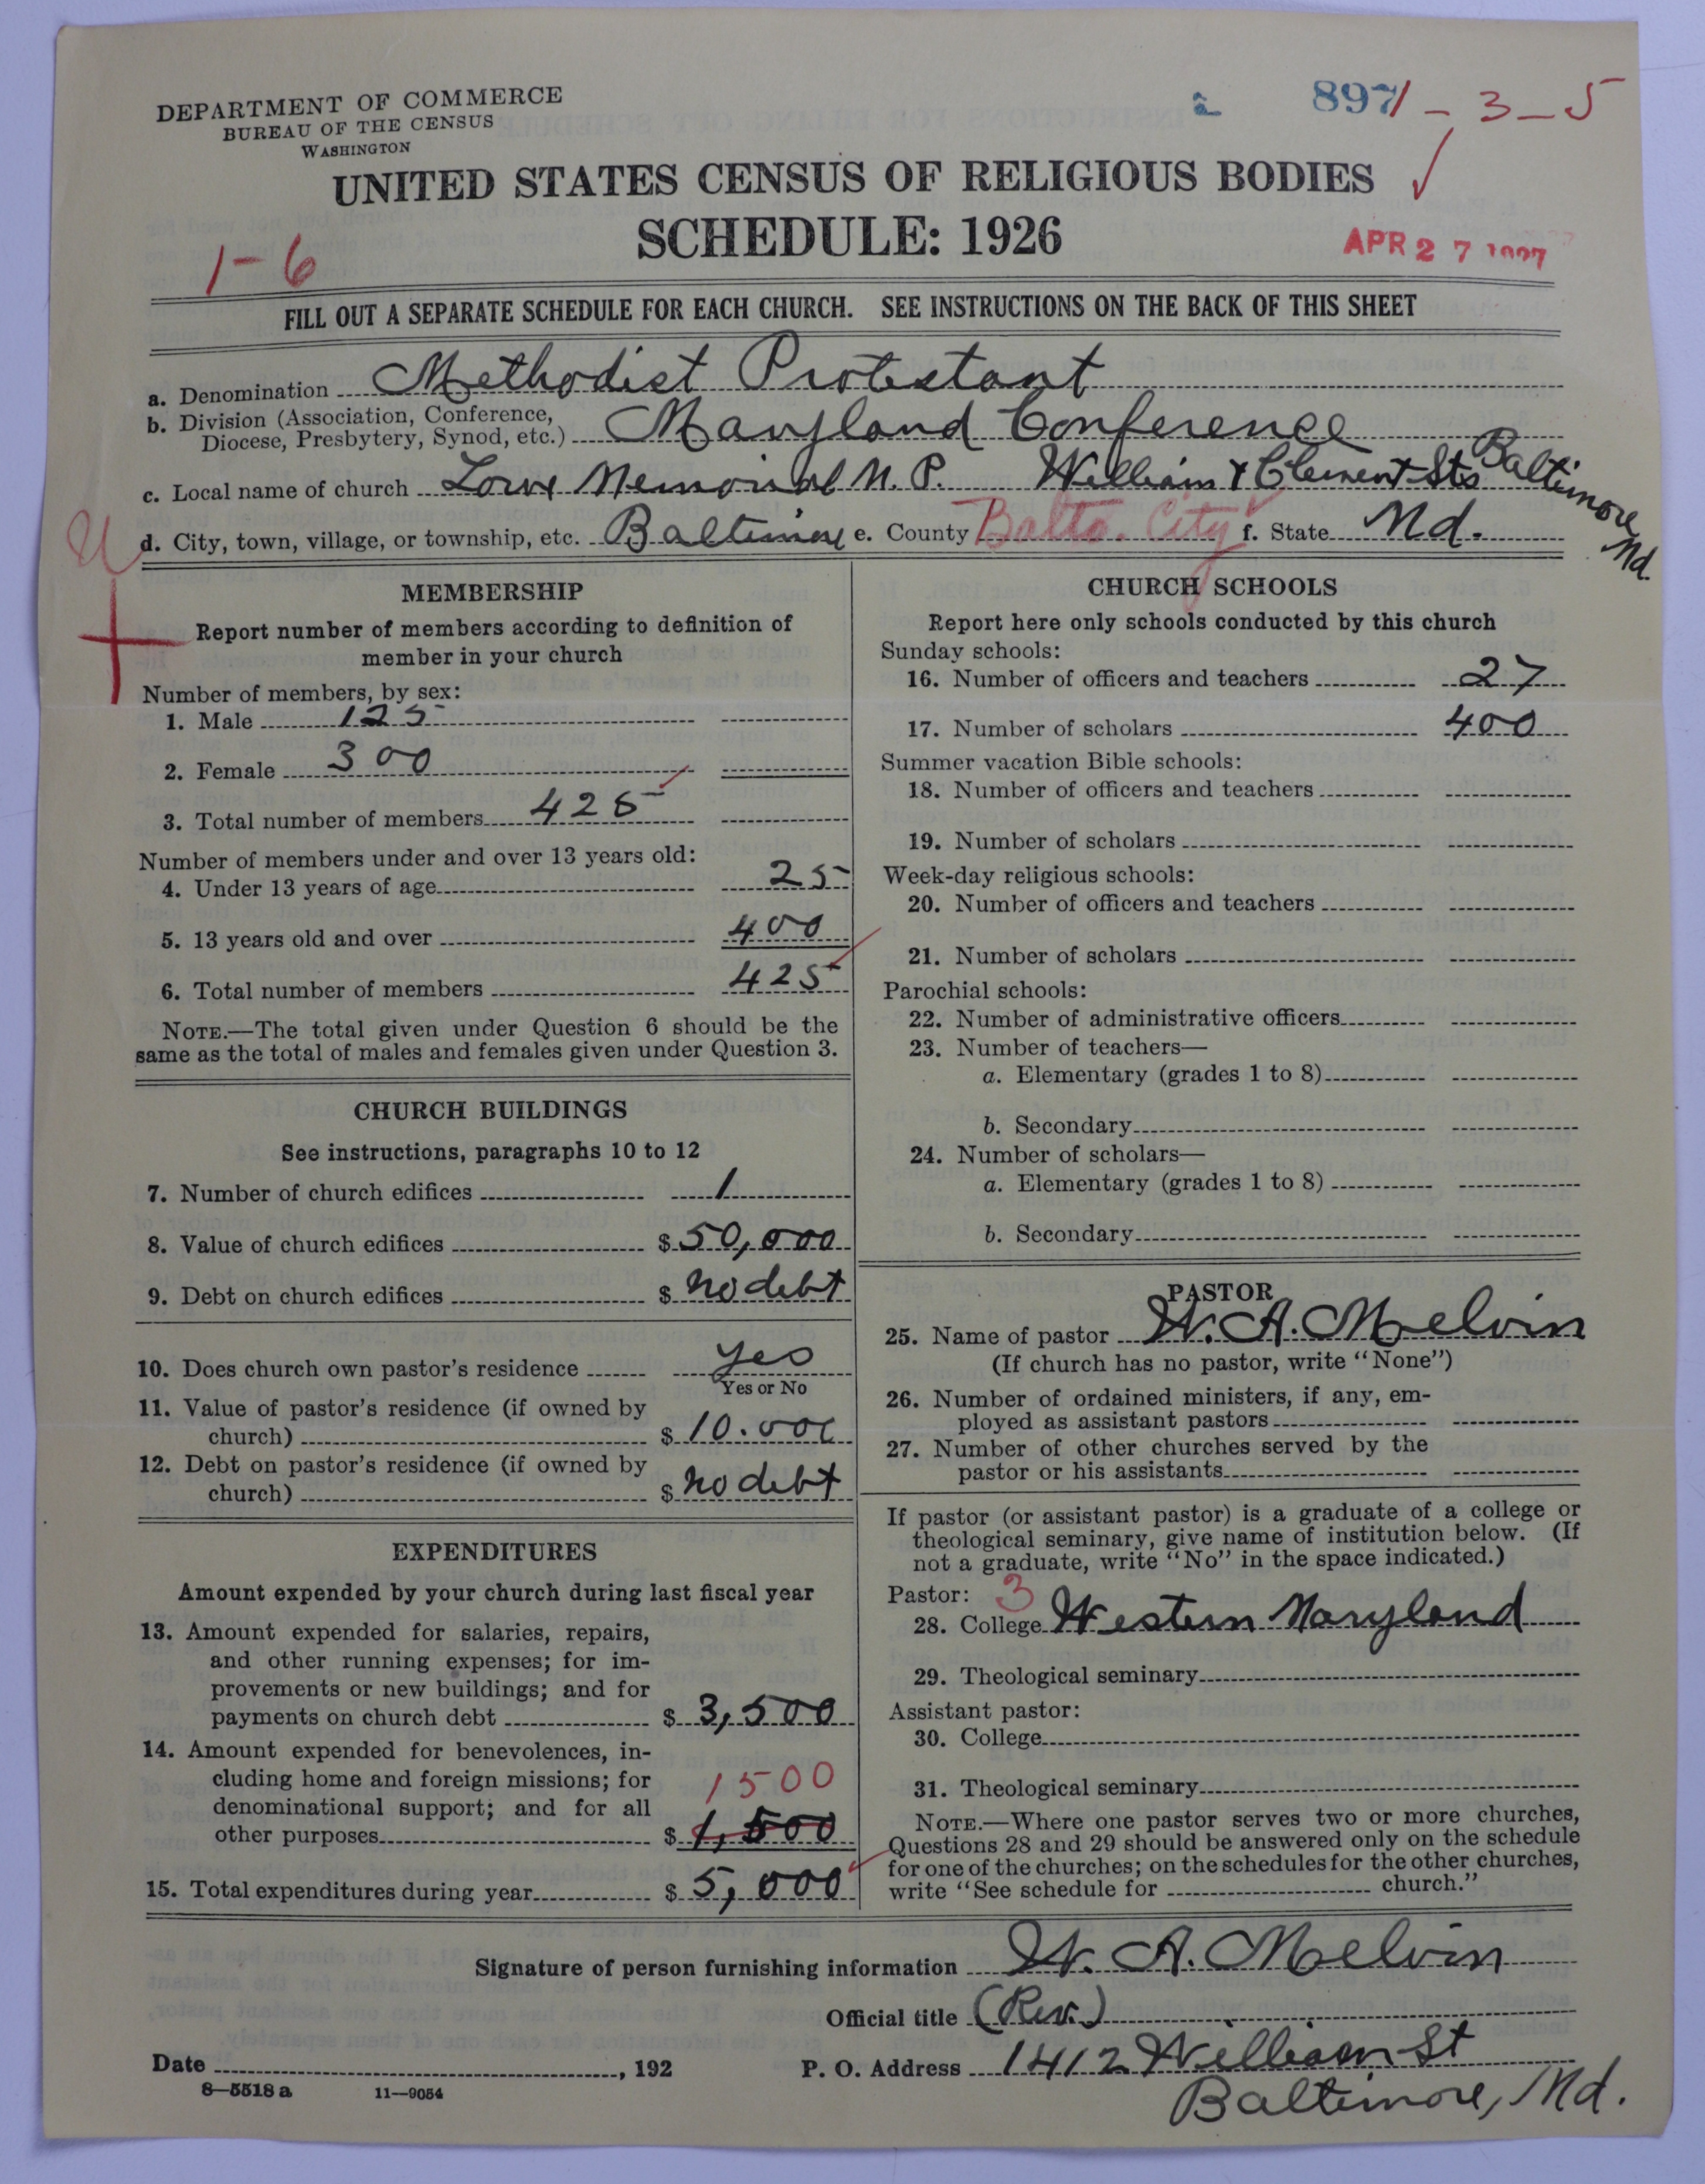 DEPARTMENT OF COMMERCE
BUREAU OF THE CENSUS
WASHINGTON
897 1-3-5
UNITED STATES CENSUS OF RELIGIOUS BODIES
SCHEDULE: 1926
1-6
APR 27 1927
FILL OUT A SEPARATE SCHEDULE FOR EACH CHURCH. SEE INSTRUCTIONS ON THE BACK OF THIS SHEET
a. Denomination Methodist Protestant
b. Division (Association, Conference,
Diocese, Presbytery, Synod, etc.) Maryland Conference
c. Local name of church Memorial M. P. William & Clement Sts Baltimore Md.
d. City, town, village, or township, etc. Baltimore e. County Balto. City f. State Md.
MEMBERSHIP
Report number of members according to definition of
member in your church
Number of members, by sex:
1. Male 125
2. Female 300
3. Total number of members 425
Number of members under and over 13 years old:
4. Under 13 years of age 25
5. 13 years old and over 400
6. Total number of members 425
NOTE.—The total given under Question 6 should be the
same as the total of males and females given under Question 3.
CHURCH BUILDINGS
See instructions, paragraphs 10 to 12
7. Number of church edifices 1
8. Value of church edifices $ 50,000
9. Debt on church edifices $ no debt
10. Does church own pastor's residence yes
Yes or No
11. Value of pastor's residence (if owned by
church) $ 10.000
12. Debt on pastor's residence (if owned by
church) $ no debt
EXPENDITURES
Amount expended by your church during last fiscal year
13. Amount expended for salaries, repairs,
and other running expenses; for im-
provements or new buildings; and for
payments on church debt $ 3,500
14. Amount expended for benevolences, in-
cluding home and foreign missions; for 1500
denominational support; and for all
other purposes $ 1,500
15. Total expenditures during year $ 5,000
CHURCH SCHOOLS
Report here only schools conducted by this church
Sunday schools:
16. Number of officers and teachers 27
17. Number of scholars 400
Summer vacation Bible schools:
18. Number of officers and teachers
19. Number of scholars
Week-day religious schools:
20. Number of officers and teachers
21. Number of scholars
Parochial schools:
22. Number of administrative officers
23. Number of teachers—
a. Elementary (grades 1 to 8)
b. Secondary
24. Number of scholars—
a. Elementary (grades 1 to 8)
b. Secondary
PASTOR
25. Name of pastor W. A. Melvin
(If church has no pastor, write "None")
26. Number of ordained ministers, if any, em-
ployed as assistant pastors
27. Number of other churches served by the
pastor or his assistants
If pastor (or assistant pastor) is a graduate of a college or
theological seminary, give name of institution below. (If
not a graduate, write "No" in the space indicated.)
Pastor: 3
28. College Western Maryland
29. Theological seminary
Assistant pastor:
30. College
31. Theological seminary
NOTE.—Where one pastor serves two or more churches,
Questions 28 and 29 should be answered only on the schedule
for one of the churches; on the schedules for the other churches,
write "See schedule for church."
Signature of person furnishing information W. A. Melvin
Official title (Rev.)
Date , 192 P. O. Address 1412 William St
8—5518 a 11—9054 Baltimore, Md.